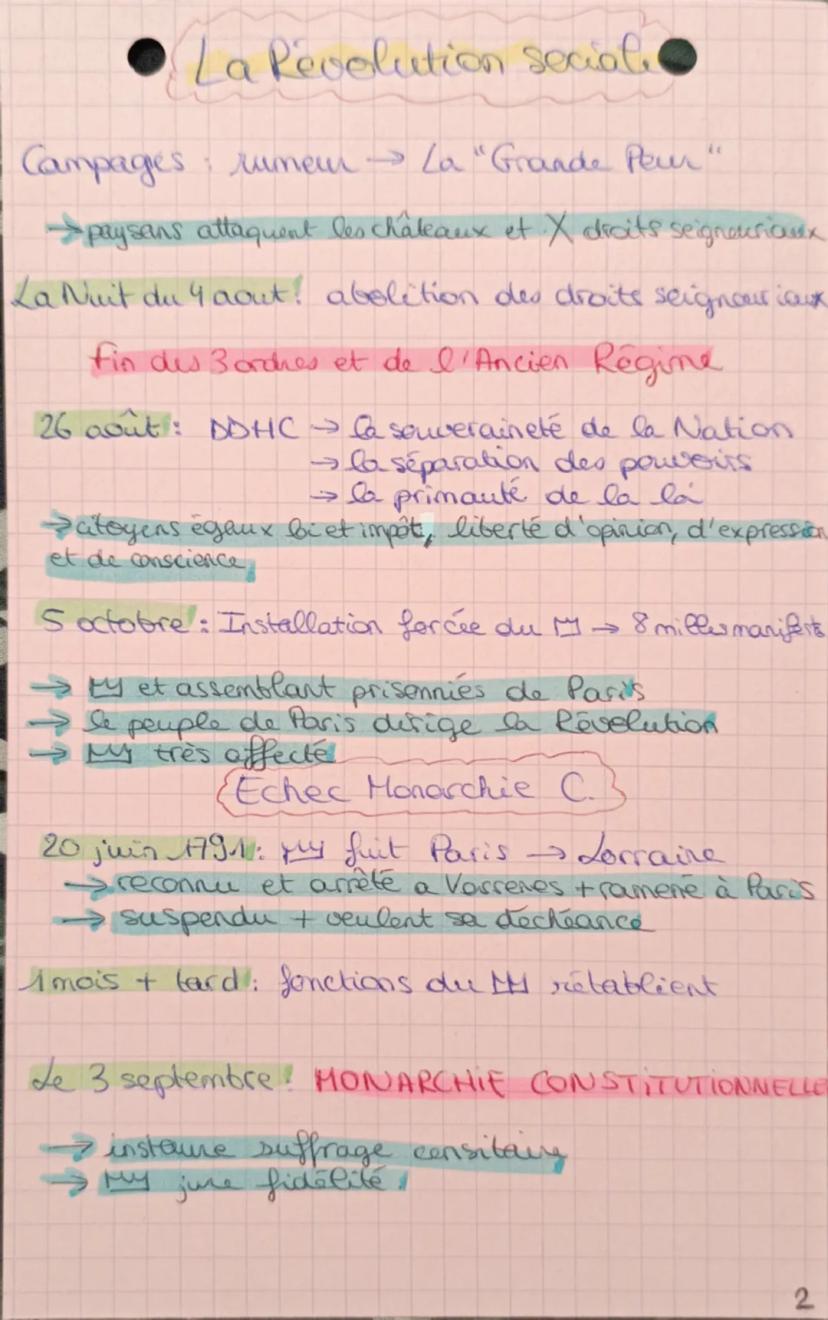 La Révolution sociale
Campages : rumeur → La "Grande Peur"
→ paysans attaquent les châteaux et X droits seigneuriaux
La Nuit du 4 aout : abolition des droits seigneuriaux
fin des 3 ordres et de l'Ancien Régime
26 août : DDHC → la souveraineté de la Nation
→ la séparation des pouvoirs
→ la primauté de la loi
→ citoyens égaux loi et impôt, liberté d'opinion, d'expression
et de conscience
5 octobre : Installation forcée du → 8 milles manifests
→ et assemblant prisonniés de Paris
→ le peuple de Paris dirige la Révolution
→ très affecté
Echec Monarchie C.
20 juin 1791 : fuit Paris → Lorraine
→ reconnu et arrêté a Varrenes + ramené à Paris
→ suspendu + veulent sa déchéance
1 mois + tard : fonctions du rétablient
Le 3 septembre : MONARCHIE CONSTITUTIONNELLE
→ instaure suffrage censitaire
→ jure fidélité
2